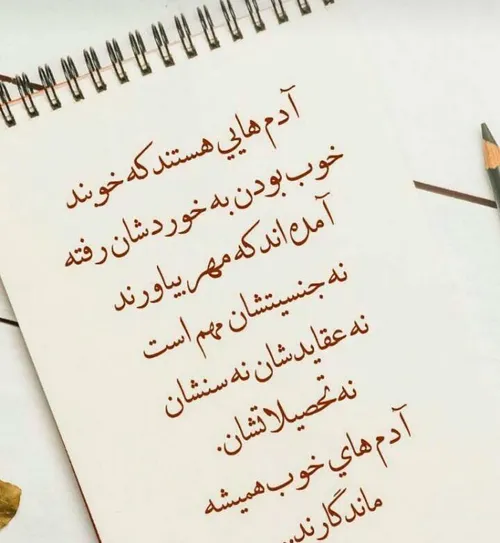 آدم هايي هستند که خوبند
خوب بودن به خوردشان رفته
آمده اند که مهر بياورند
نه جنسيتشان مهم است
نه عقايدشان نه سنشان
نه تحصيلاتشان.
آدم هاي خوب هميشه
ماندگارند...